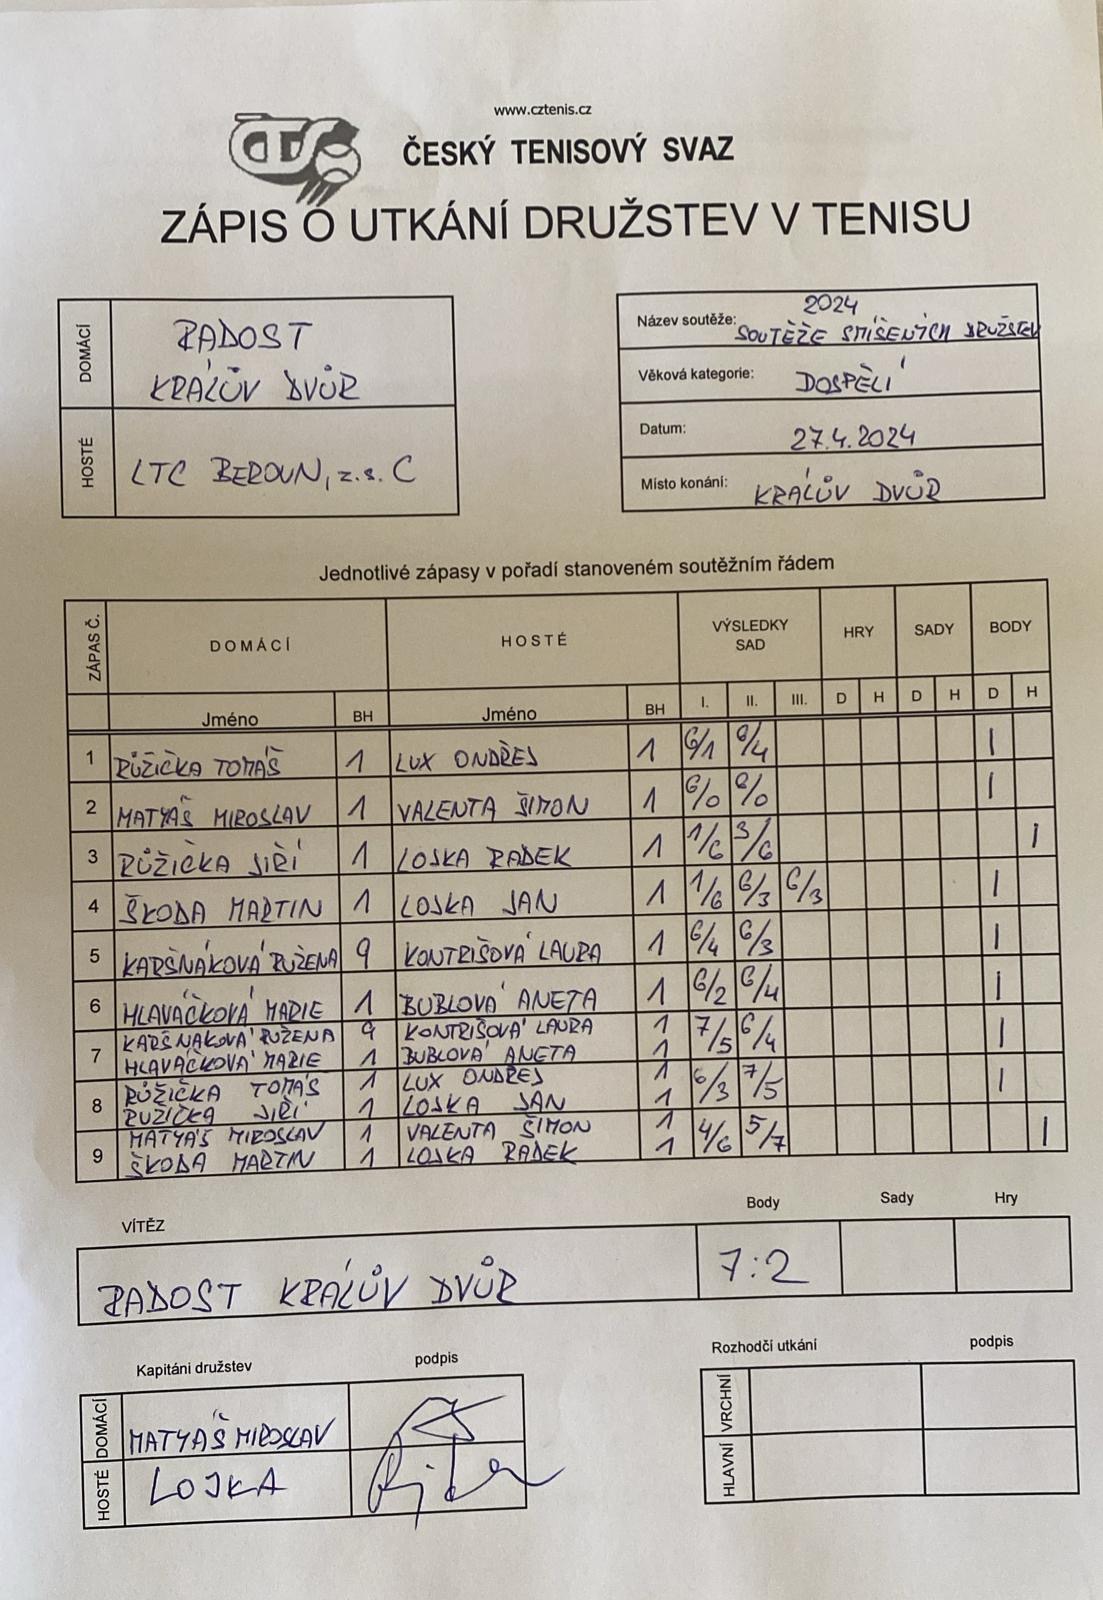 www.cztenis.cz
ČTS
ČESKÝ TENISOVÝ SVAZ
ZÁPIS O UTKÁNÍ DRUŽSTEV V TENISU
DOMÁCÍ RADOST
KRÁLŮV DVŮR
HOSTÉ LTC BEROUN, z.s. C
Název soutěže: 2024
SOUTĚŽE SMÍŠENÝCH DRUŽSTEV
Věková kategorie: DOSPĚLÍ
Datum: 27.4.2024
Místo konání: KRÁLŮV DVŮR
Jednotlivé zápasy v pořadí stanoveném soutěžním řádem
ZÁPAS Č. DOMÁCÍ HOSTÉ VÝSLEDKY SAD HRY SADY BODY
Jméno BH Jméno BH I. II. III. D H D H D H
1 RŮŽIČKA TOMÁŠ 1 LUX ONDŘEJ 1 6/1 6/4 1
2 MATYÁŠ MIROSLAV 1 VALENTA ŠIMON 1 6/0 6/0 1
3 RŮŽIČKA JIŘÍ 1 LOJKA RADEK 1 1/6 3/6 1
4 ŠKODA MARTIN 1 LOJKA JAN 1 1/6 6/3 6/3 1
5 KARŠŇÁKOVÁ RUŽENA 9 KONTRIŠOVÁ LAURA 1 6/4 6/3 1
6 HLAVÁČKOVÁ MARIE 1 BUBLOVÁ ANETA 1 6/2 6/4 1
7 KARŠŇÁKOVÁ RUŽENA 9 KONTRIŠOVÁ LAURA 1 7/5 6/4 1
HLAVÁČKOVÁ MARIE 1 BUBLOVÁ ANETA 1
8 RŮŽIČKA TOMÁŠ 1 LUX ONDŘEJ 1 6/3 7/5 1
RUŽIČKA JIŘÍ 1 LOJKA JAN 1
9 MATYÁŠ MIROSLAV 1 VALENTA ŠIMON 1 4/6 5/7 1
ŠKODA MARTIN 1 LOJKA RADEK 1
VÍTĚZ Body Sady Hry
RADOST KRÁLŮV DVŮR 7:2
Kapitáni družstev podpis
DOMÁCÍ MATYÁŠ MIROSLAV
HOSTÉ LOJKA
Rozhodčí utkání podpis
VRCHNÍ
HLAVNÍ